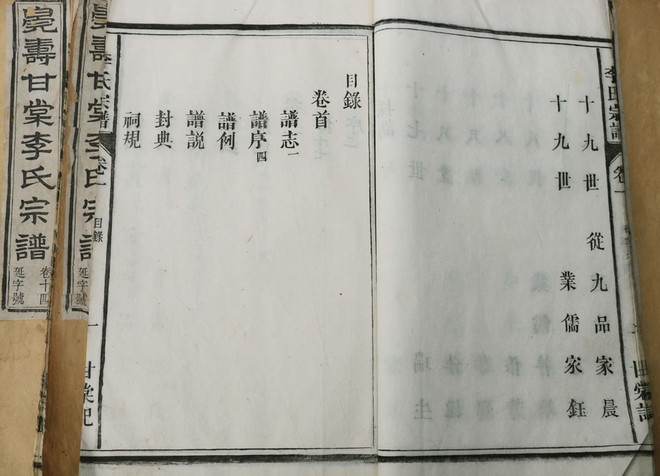 十九世 從九品家晨
十九世 業儒家鈺
目錄
卷首
譜志一
譜序四
譜例
譜説
封典
祠規
氏宗譜 卷一
目錄
一
甘棠記
壽甘棠李氏宗
延字號
壽甘棠李氏宗譜
卷十四
延字號